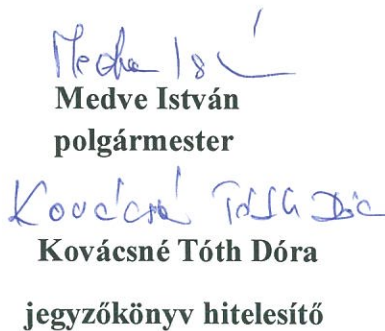 Medve Is
Medve István
polgármester
Kovácsné Tóth Dóra
Kovácsné Tóth Dóra
jegyzőkönyv hitelesítő